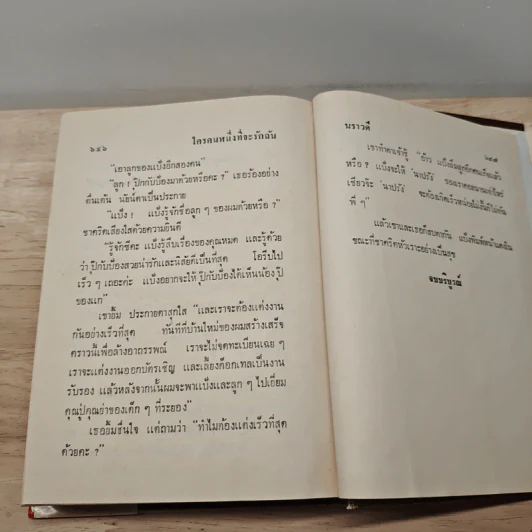 ๖๔๖ ใครคนหนึ่งที่จะรักฉัน
"เอาลูกของแป้งอีกสองคน"
"ลูก ! ปุ๊กกับป๋องมาด้วยหรือคะ ?" เธอร้องอย่าง
ตื่นเต้น นัยน์ตาเป็นประกาย
"แป้ง ! แป้งรู้จักชื่อลูก ๆ ของผมด้วยหรือ ?"
ชาคริตเสียงใสด้วยความยินดี
"รู้จักซีคะ แป้งรู้สืบเรื่องของคุณหมด และรู้ด้วย
ว่า ปุ๊กกับป๋องสวยน่ารักและนิสัยดีเป็นที่สุด โอรีบไป
เร็ว ๆ เถอะค่ะ แป้งอยากจะให้ ปุ๊กกับป๋องได้เห็นน้องปุ๊
ของแก"
เขายิ้ม ประกายตาสุกใส "และเราจะต้องแต่งงาน
กันอย่างเร็วที่สุด ทันทีที่บ้านใหม่ของผมสร้างเสร็จ
คราวนี้เพื่อล้างอาถรรพณ์ เราจะไม่จดทะเบียนเฉย ๆ
เราจะแต่งงานออกบัตรเชิญ และเลี้ยงค็อกเทลเป็นงาน
รับรอง แล้วหลังจากนั้นผมจะพาแป้งและลูก ๆ ไปเยี่ยม
คุณปู่คุณย่าของเด็ก ๆ ที่ระยอง"
เธอยิ้มชื่นใจ แต่ถามว่า "ทำไมต้องแต่งเร็วที่สุด
ด้วยคะ ?"
นราวดี ๖๔๗
เขาทำตาเจ้าชู้ "อ้าว แป้งลืมลูกอีกคนเสียแล้ว
หรือ ? แป้งจะให้
พี่ ๆ"
แล้วเขาและเธอก็สบตากัน
ขณะที่ชาคริตหัวเราะอย่างเป็นสุข
จบบริบูรณ์